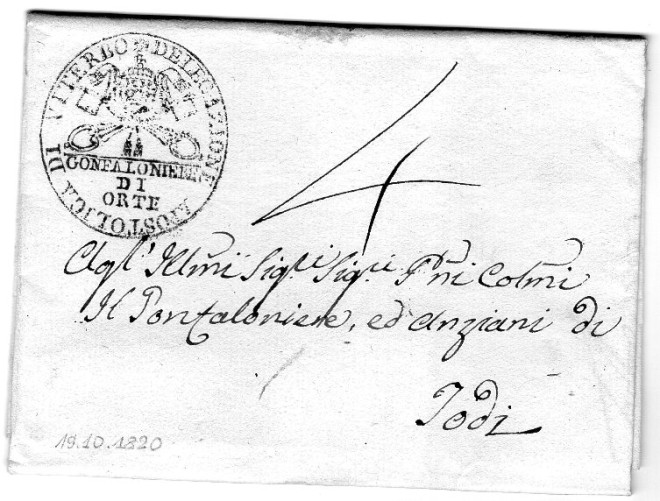 DELEGAZIONE APOSTOLICA DI VITERBO
GONFALONIERE
DI
ORTE
4
Agl' Illmi Sigri Sigri Pñi Colmi
Il Gonfaloniere, ed Anziani di
Todi
19.10.1820